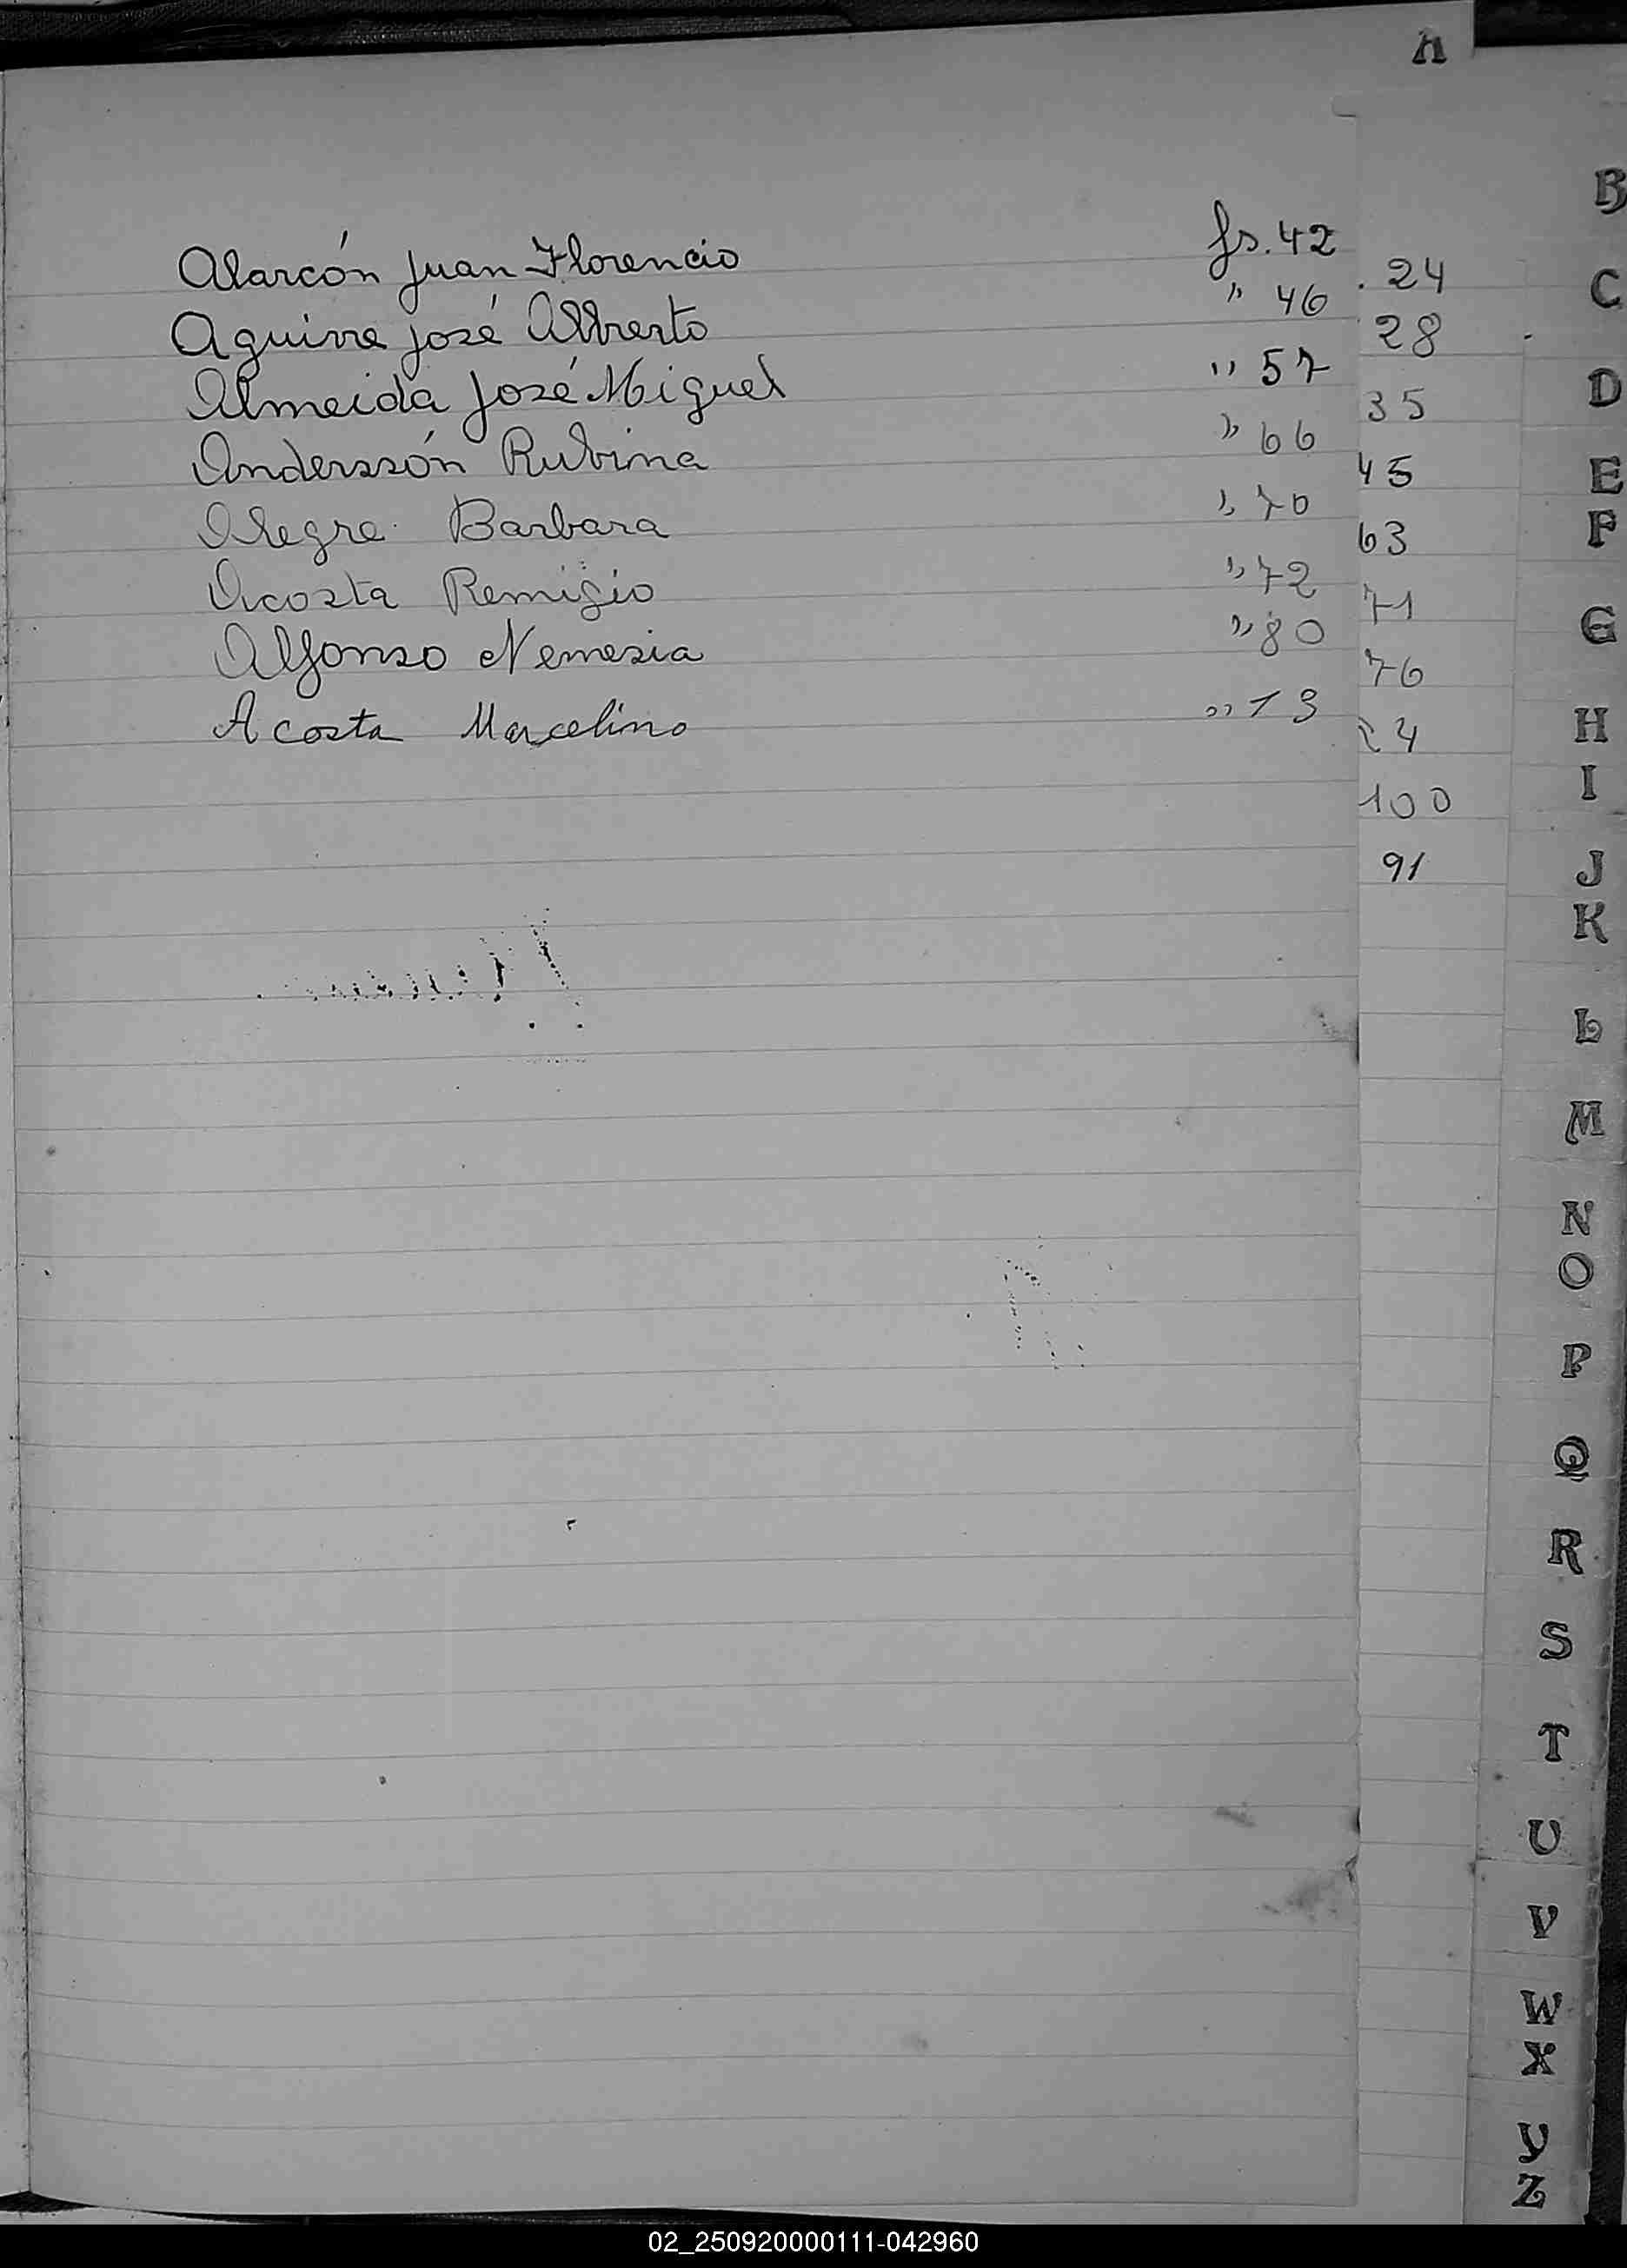 A
Alarcón Juan Florencio fs. 42
Aguirre José Alberto " 46
Almeida José Miguel " 57
Anderssón Rubina " 66
Alegre Barbara " 70
Acosta Remigio " 72
Alfonso Nemesia " 80
Acosta Marcelino " 13
24
28
35
45
63
71
76
24
100
91
B
C
D
E
F
G
H
I
J
K
L
M
N
O
P
Q
R
S
T
U
V
W
X
Y
Z
02_250920000111-042960